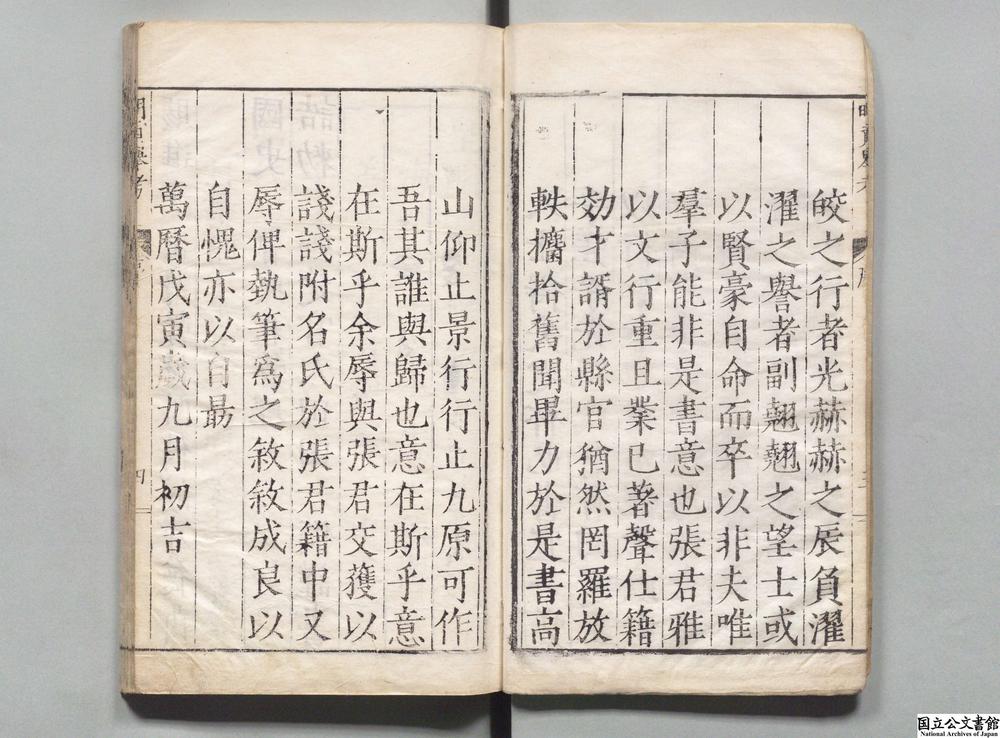 皎之行者光赫赫之辰負濯
濯之譽者副翹翹之望士或
以賢豪自命而卒以非夫唯
羣子能非是書意也張君雅
以文行重且業已著聲仕籍
効才諝於縣官猶然罔羅放
軼攟拾舊聞畢力於是書高
山仰止景行行止九原可作
吾其誰與歸也意在斯乎意
在斯乎余辱與張君交獲以
諓諓附名氏於張君籍中又
辱俾執筆為之敘敘成良以
自愧亦以自勗
萬曆戊寅歲九月初吉
序
四
国立公文書館
National Archives of Japan